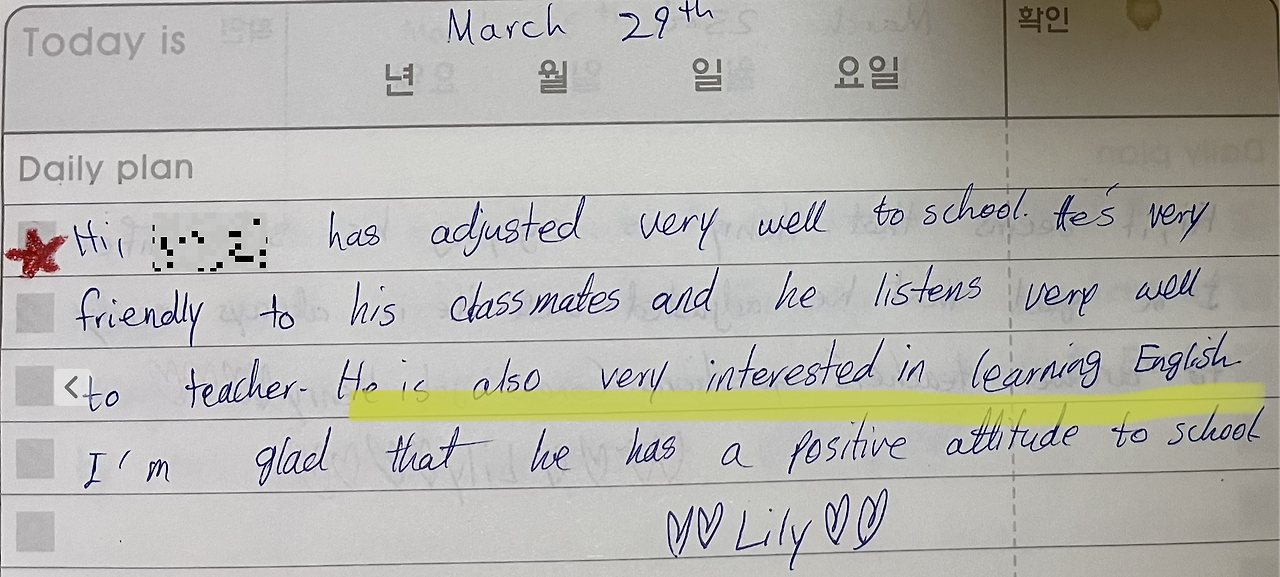 March 29th
Today is
년 월 일 요일
확인
Daily plan
Hi, has adjusted very well to school. He's very
friendly to his classmates and he listens very well
to teacher. He is also very interested in learning English
I'm glad that he has a positive attitude to school
Lily